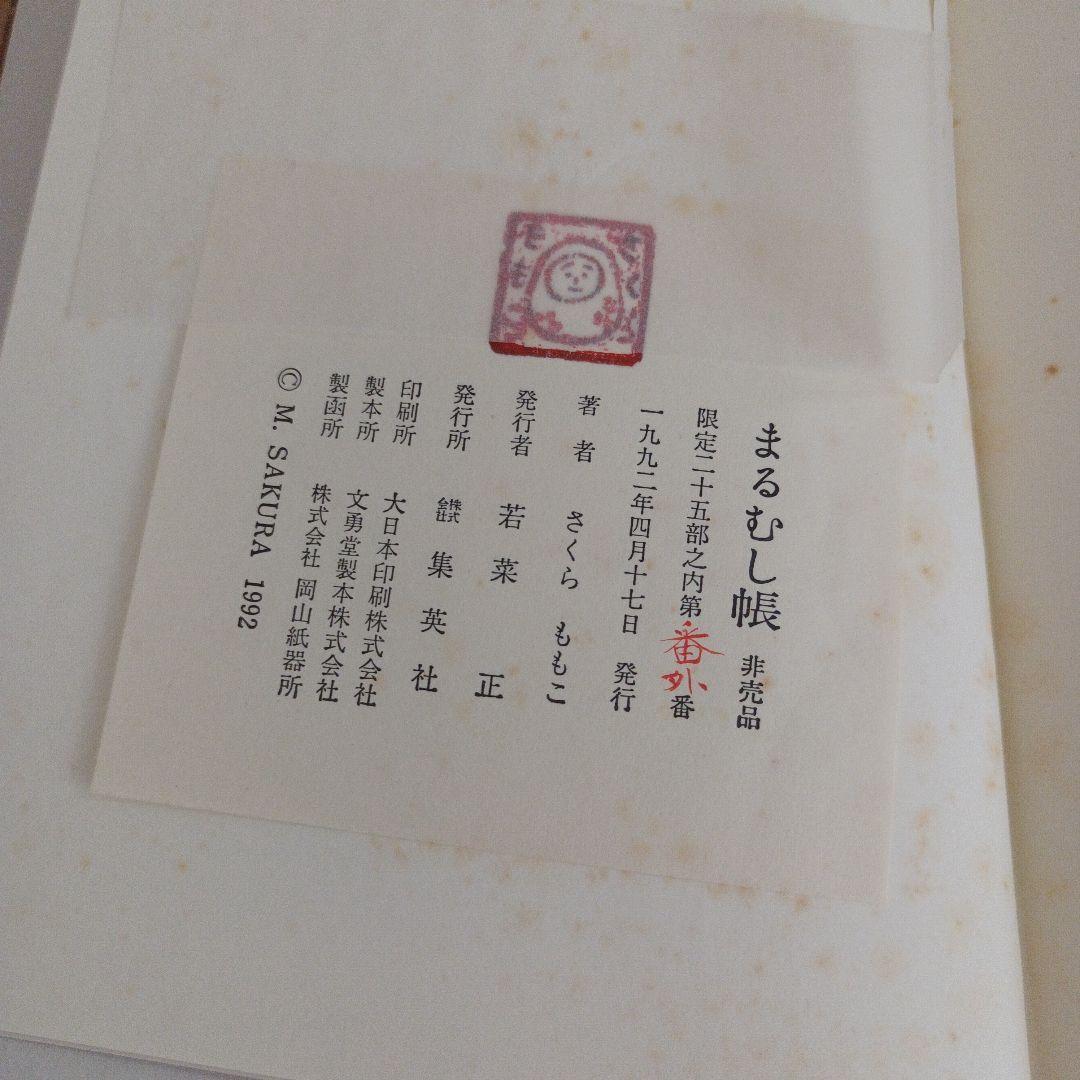 さくら
ももこ
まるむし帳 非売品
限定二十五部之内第番外番
一九九二年四月十七日 発行
著者 さくら ももこ
発行者 若菜 正
発行所 株式会社 集英社
印刷所 大日本印刷株式会社
製本所 文勇堂製本株式会社
製函所 株式会社 岡山紙器所
© M. SAKURA 1992